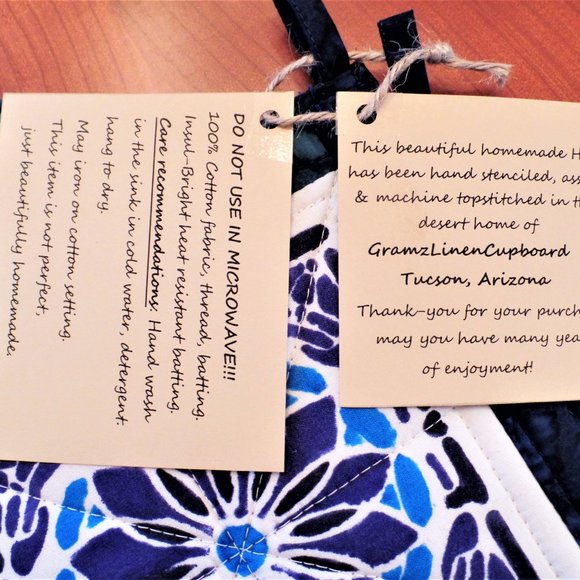 DO NOT USE IN MICROWAVE!!!
100% Cotton fabric, thread, batting.
Insul-Bright heat resistant batting.
Care recommendations: Hand wash
in the sink in cold water, detergent.
hang to dry.
May iron on cotton setting.
This item is not perfect,
just beautifully homemade.
This beautiful homemade
has been hand stenciled,
& machine topstitched in
desert home of
GramzLinenCupboard
Tucson, Arizona
Thank-you for your
may you have many
of enjoyment!